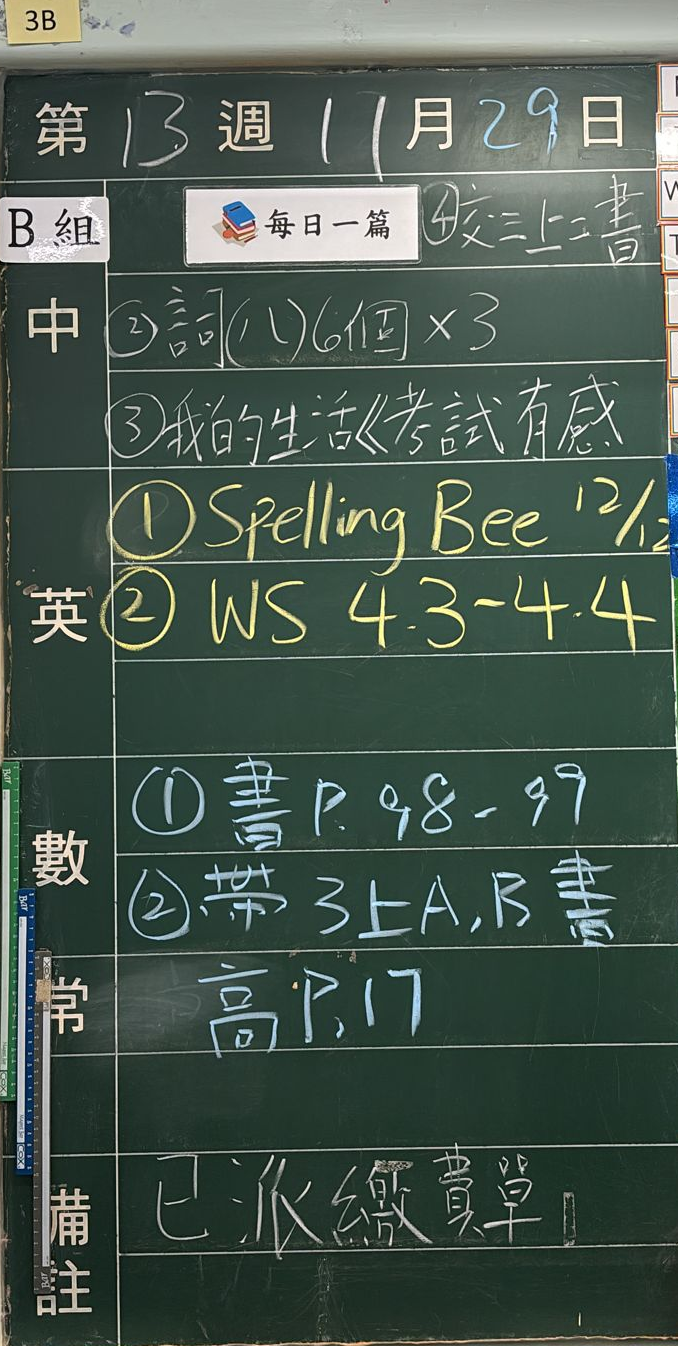 3B
第13週11月29日
B組 每日一篇 ④交三上二書
中 ②詞(八)6個×3
③我的生活《考試有感
① Spelling Bee 12/12
英 ② WS 4.3-4.4
① 書 P. 98-99
數 ② 帶 3上A,B 書
常 高 P.17
已派繳費單
備註